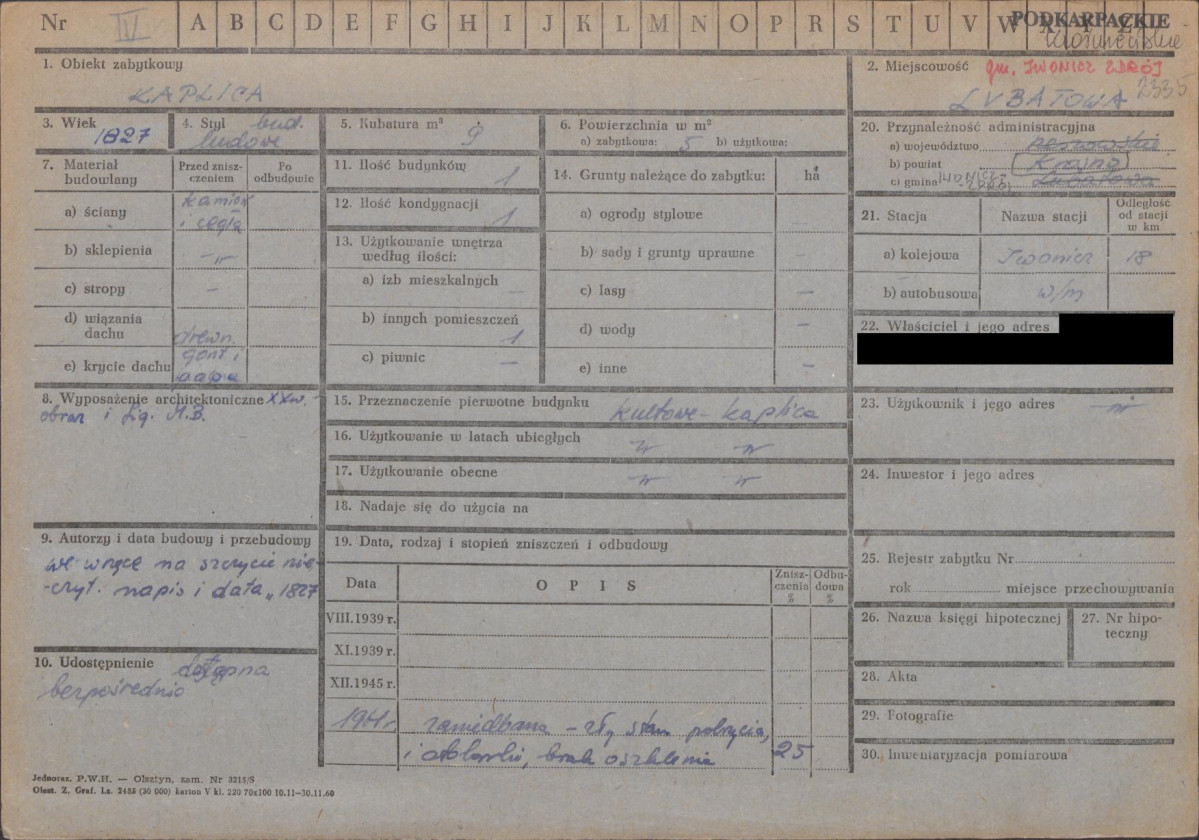 Nr IV A B C D E F G H I J K L M N O P R S T U V W X Y Z
PODKARPACKIE
1. Obiekt zabytkowy
KAPLICA
2. Miejscowość gm. IWONICZ ZDRÓJ
LUBATOWA 2335
3. Wiek
1827
4. Styl bud.
ludowe
5. Kubatura m³ 9
6. Powierzchnia w m²
a) zabytkowa: 5 b) użytkowa:
7. Materiał budowlany
Przed zniszczeniem
Po odbudowie
a) ściany kamień
i cegła
b) sklepienia -"-
c) stropy –
d) wiązania
dachu drewn.
e) krycie dachu gont i
papa
8. Wyposażenie architektoniczne XX w. -
obraz i fig. M.B.
9. Autorzy i data budowy i przebudowy
we wnęce na szczycie nie-
-czyt. napis i data „1827
10. Udostępnienie dostępna
bezpośrednio
11. Ilość budynków 1
12. Ilość kondygnacji 1
13. Użytkowanie wnętrza
według ilości:
a) izb mieszkalnych –
b) innych pomieszczeń 1
c) piwnic –
14. Grunty należące do zabytku: ha
a) ogrody stylowe –
b) sady i grunty uprawne –
c) lasy –
d) wody –
e) inne –
15. Przeznaczenie pierwotne budynku kultowe - kaplica
16. Użytkowanie w latach ubiegłych -"- -"-
17. Użytkowanie obecne -"- -"-
18. Nadaje się do użycia na
19. Data, rodzaj i stopień zniszczeń i odbudowy
Data
O P I S
Zniszczenia %
Odbudowa %
VIII.1939 r.
XI.1939 r.
XII.1945 r.
1961 r. zaniedbana – zły stan pokrycia,
25
20. Przynależność administracyjna
a) województwo rzeszowskie
b) powiat Krosno
c) gmina IWONICZ-
-ZDRÓJ Lubatowa
21. Stacja
Nazwa stacji
Odległość
od stacji
w km
a) kolejowa Iwonicz 18
b) autobusowa w/m
22. Właściciel i jego adres
23. Użytkownik i jego adres -"-
24. Inwestor i jego adres
25. Rejestr zabytku Nr
rok miejsce przechowywania
26. Nazwa księgi hipotecznej
27. Nr hipo-
teczny
28. Akta
29. Fotografie
30. Inwentaryzacja pomiarowa
i brak oszklenia
Jednoraz. P.W.H. — Olsztyn, zam. Nr 3215/S
Olszt. Z. Graf. Lz. 2485 (30 000) karton V kl. 220 70x100 10.11—30.11.60